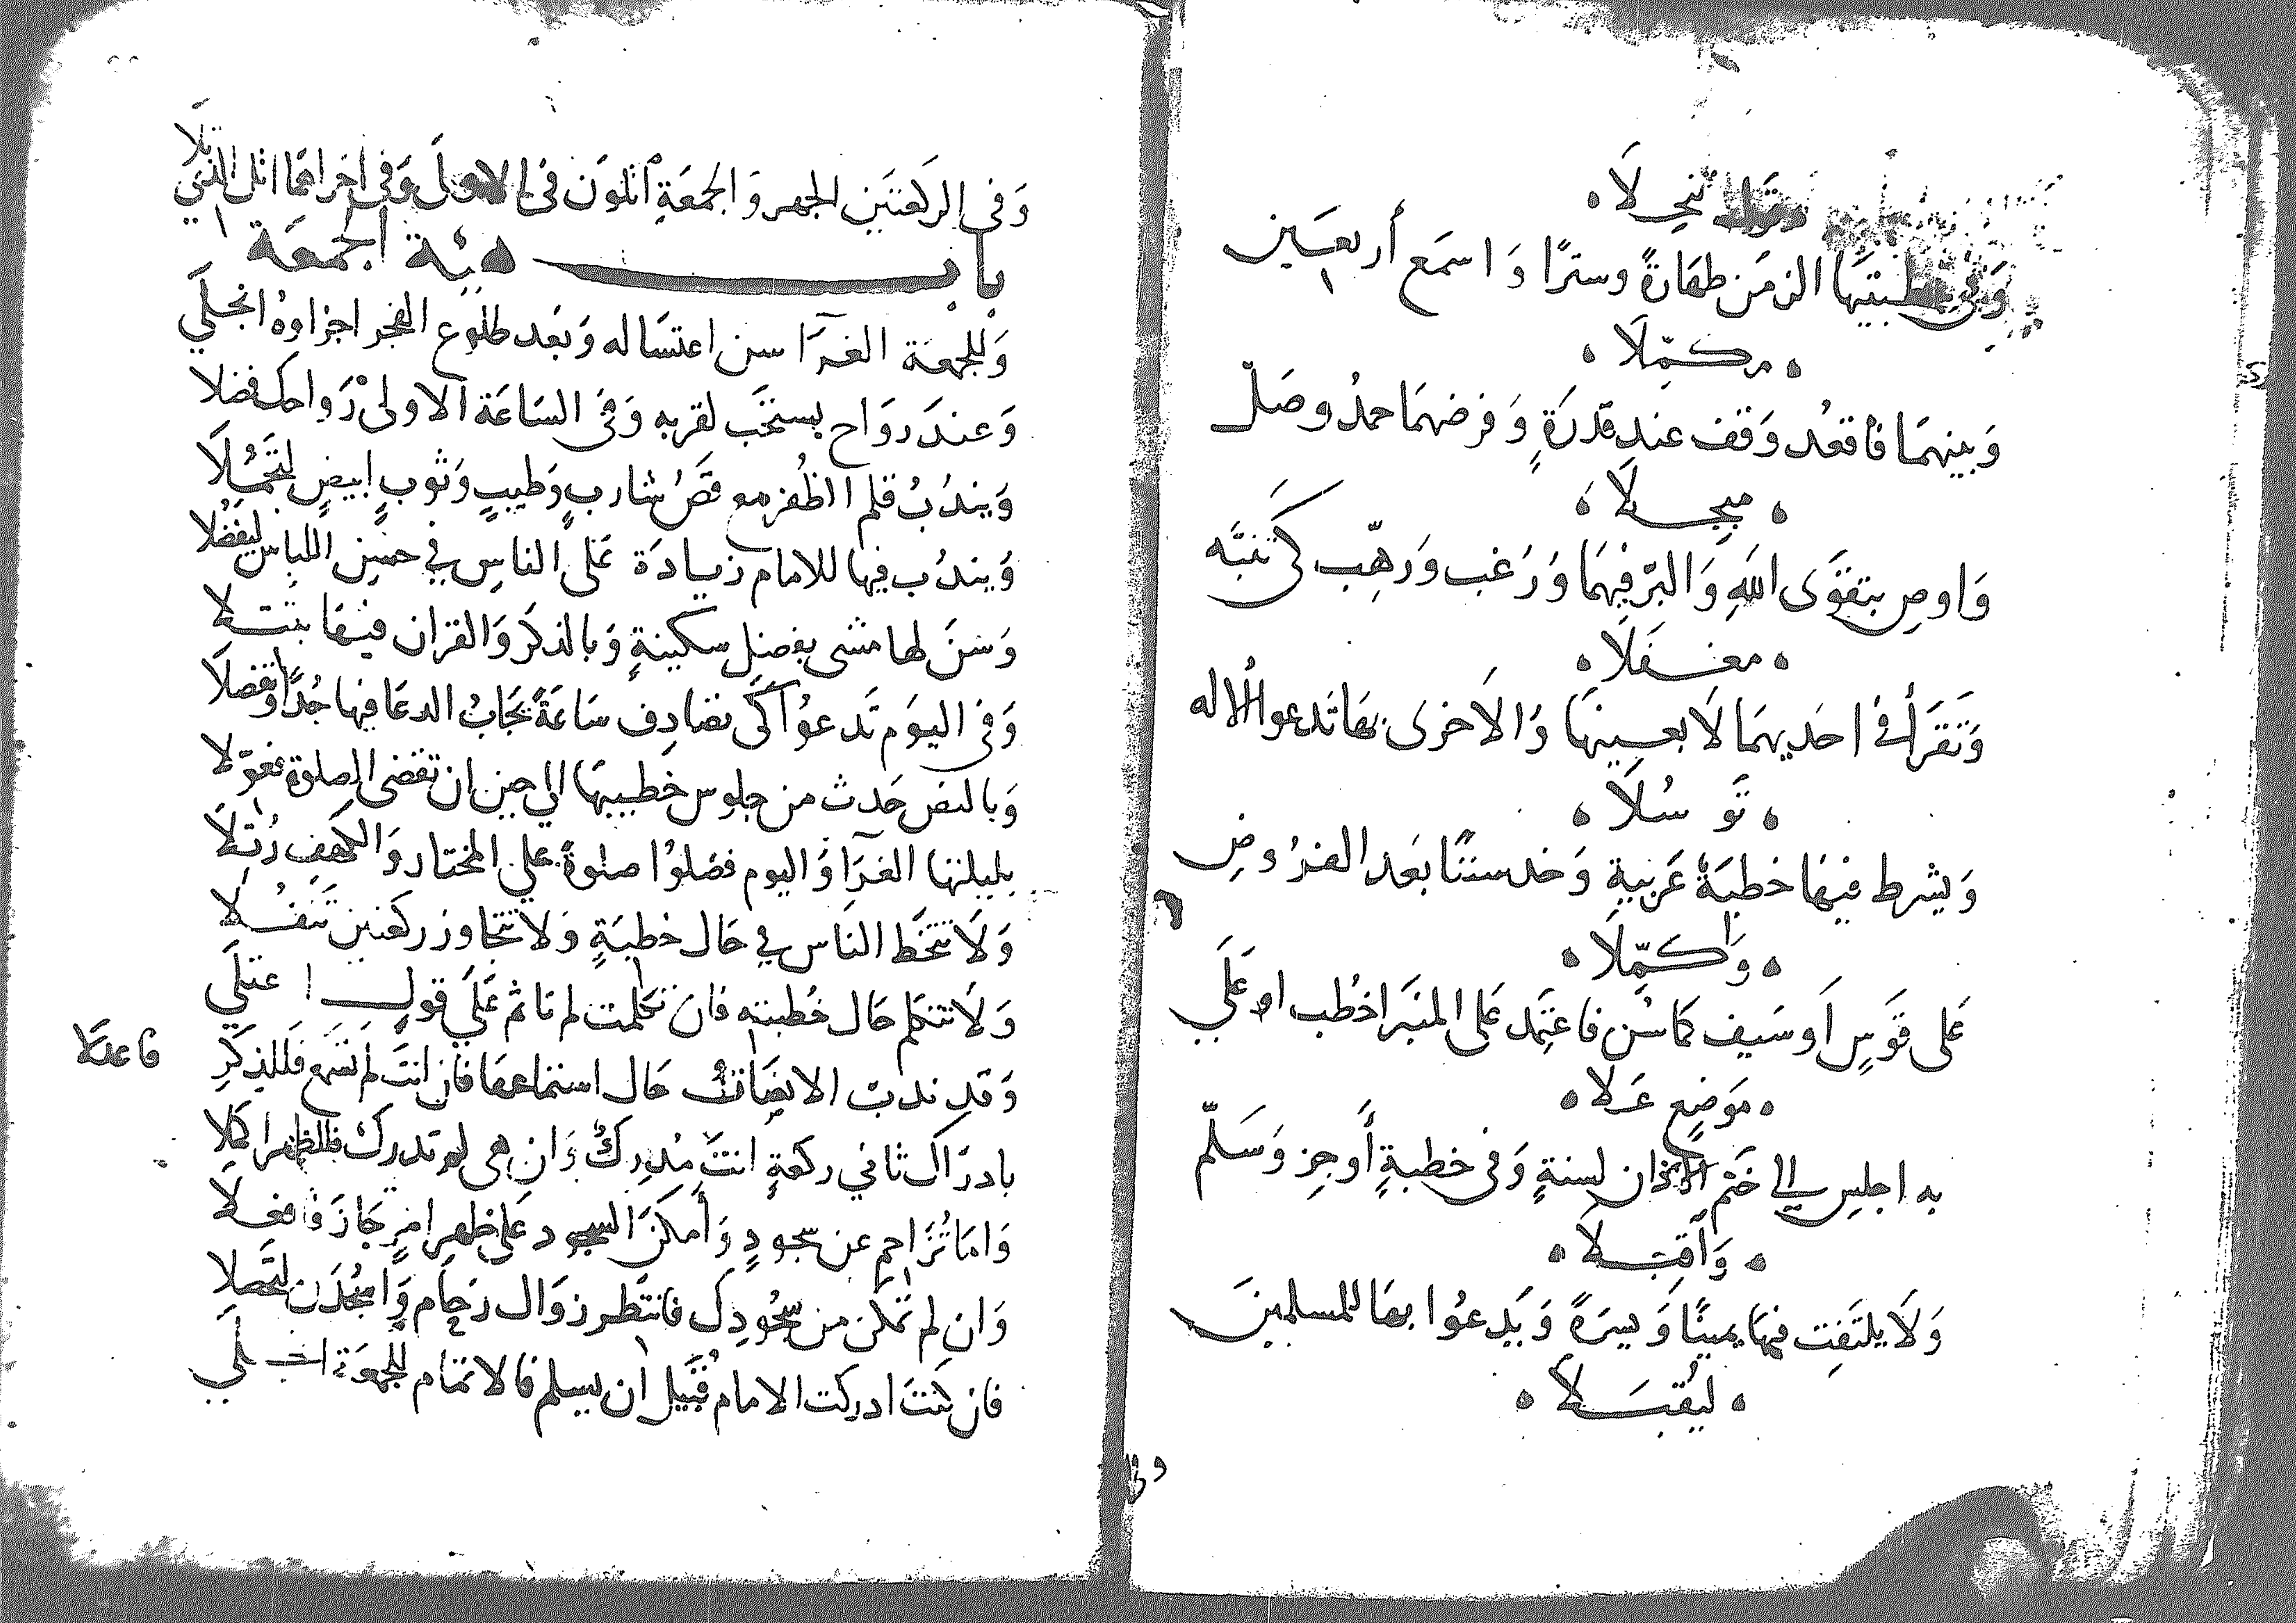 تنجلا
وفى خطبتيها الزمن طهارةً وسترًا وَاسمَع أربعَين
مكمّلَا
وَبينهمَا فاقعُد وَقف عندِ قدرَةٍ وَفرضهمَا حمدُ وصَلّ
مبجلَا
وَاوصِ بتقوَى اللهِ وَالبرّ فيهمَا وَرَغب وَرَهِّب كَى تنبّه
مغفلَا
وَتقرَأ فى احَديهمَا لَا بعينِهَا وَالاَخرى بهَا تدعوا الاله
تَوسُلَا
وَيشرط فيهَا خطبَةٌ عَربيةٍ وَخد سننًا بعَد الفرُوضِ
وَاكمّلَا
عَلى قَوسٍ اَو سَيف كمَا سُن فاعتَمِد عَلى المنبَر اخطُب او عَلَى
مَوَضعٍ عَلا
به اجلسِ الى خَتم الاذان لسنةٍ وَفى خطبةٍ أَوجز وَسَلّم
وَاَقبلَا
وَلَا يلتَفِت فيهَا يمينًا وَيسرَةً وَيَدعوُا بهَا للمسلمينَ
ليُقبَلَا
وفى
وَفى الركعتَين الجهر وَالجمعَةِ اتلوَن فى الاولَى وَفى اخراهمَا اتل الذى تلَا
باب هيئة الجمعَة
وَللجمعَة الغرّآ سن اغتسَاله وَبعَد طلوع الفجر اجزاوهُ انجلَى
وَعندَ روَاح يستحَب لقربه وَفى السَاعَة الاولى رَواحك فضلا
وَيندُبُ قلم الظُفر مع قصُ شاربٍ وَطيبٍ وَثوبٍ ابيضٍ لتجمُلَا
وَيندُب فيها للامام زيادَة عَلى الناسِ في حسنِ اللباس ليفضُلا
وَسنَ لها مشى بفضل سكينةٍ وَبالذكَر وَالقران فيهَا تبتلا
وَفى اليوَم تَدعوُا كَى تصَادِف سَاعَةً يجَابُ الدعَا فيها
وَبالنص حَدث من جلوس خطيبهَا الى حين ان تقضى الصلوة
بليلتها الغرَآ وَاليوم فضلوُا صلوةً على المختار وَالكهَفِ رُتلَا
وَلَا تتخَط النَاس في حَال خطبةٍ وَلَا تتجَاوز ركعَتين تنَفُلا
وَلَا تتكلم حَال خُطبته فان تكلمت لم تاثم عَلَى قولٍ اعتلَى
وَقد ندبَ الانصَات حَال استماعهَا فان انتَ لم تسَمع فَللذكَرِ فاعدلا
بادرَاك ثاني ركعةٍ انتَ مُدرِكٌ وَان هى لم تدرك فللظهرِ اكملا
وَاما تُزَاحم عن سجودٍ وَأمكنَ السجود عَلى ظهرِ امرٍ جَازَ فافعلَا
وَان لم تمكن من سجُودِك فانتَظر زوَال زحَامٍ وَاسجُدَن لتحصلا
فان كنتَ ادركت الامام قُبَيل ان يسلم فالاتمَام للجمعَة انجلَى